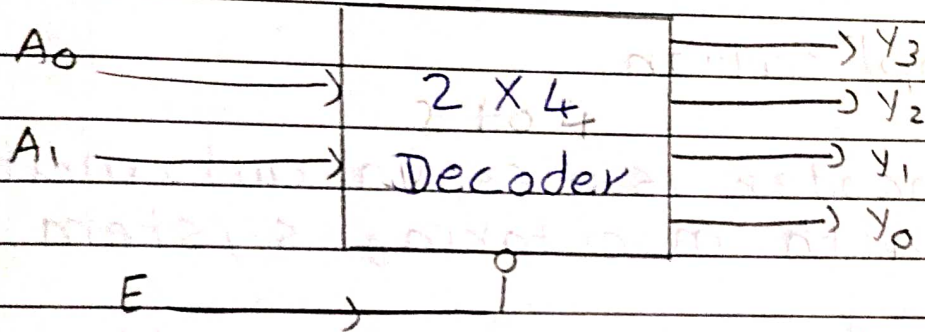 A0
A1
E
2 X 4
Decoder
Y3
Y2
Y1
Y0